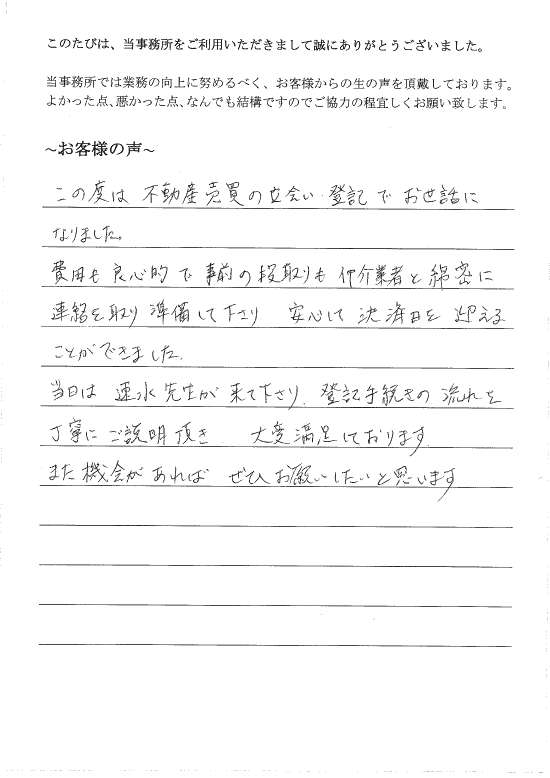 このたびは、当事務所をご利用いただきまして誠にありがとうございました。
当事務所では業務の向上に努めるべく、お客様からの生の声を頂戴しております。
よかった点、悪かった点、なんでも結構ですのでご協力の程宜しくお願い致します。
~お客様の声~
この度は 不動産売買の立会い・登記で お世話に
なりました。
費用も良心的で 事前の段取りも 仲介業者と綿密に
連絡を取り 準備して下さり 安心して 決済日を 迎える
ことができました。
当日は 速水先生が 来て下さり、登記手続きの 流れを
丁寧に ご説明頂き 大変満足しております。
また機会があれば ぜひお願いしたいと思います